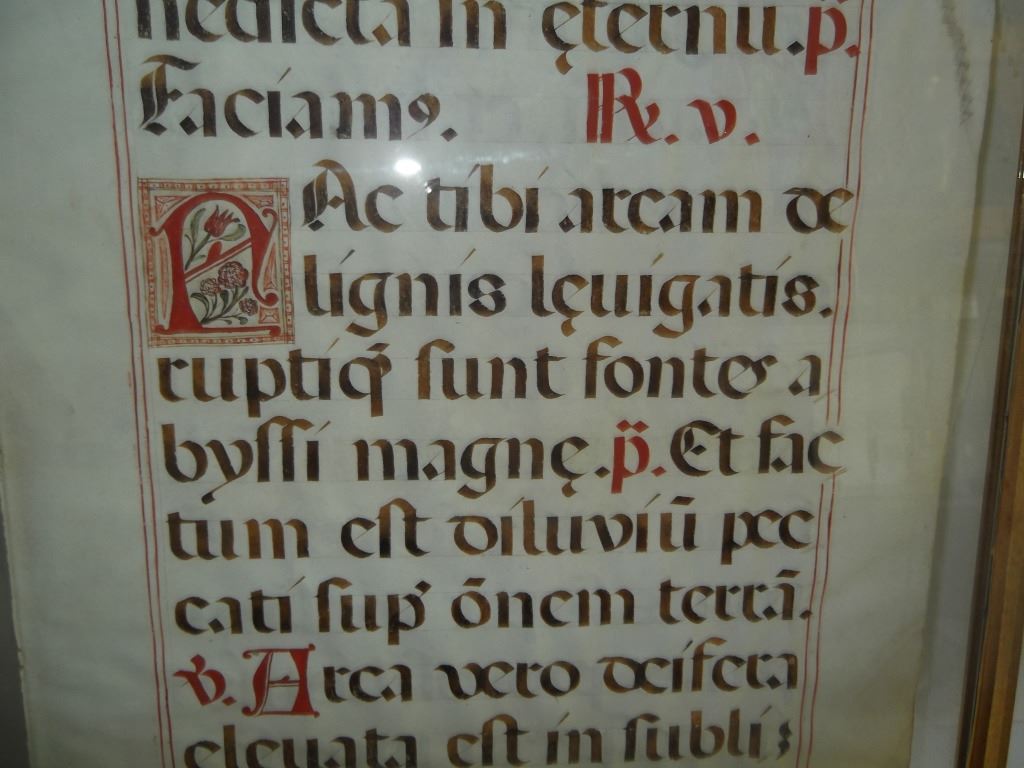 nedicta in ęternũ. p̃.
Faciamꝰ. ℟. v.
FAc tibi arcam de
lignis lęuigatis.
ruptiq́ſunt fontes a
byſſi magnę. p̃. Et fac
tum eſt diluviũ pec
cati sup̃ õnem terrã.
℣. Arca vero deifera
eleuata eſt in ſubli⁏